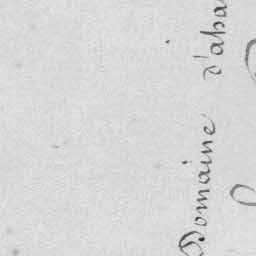 Domaine d'aba